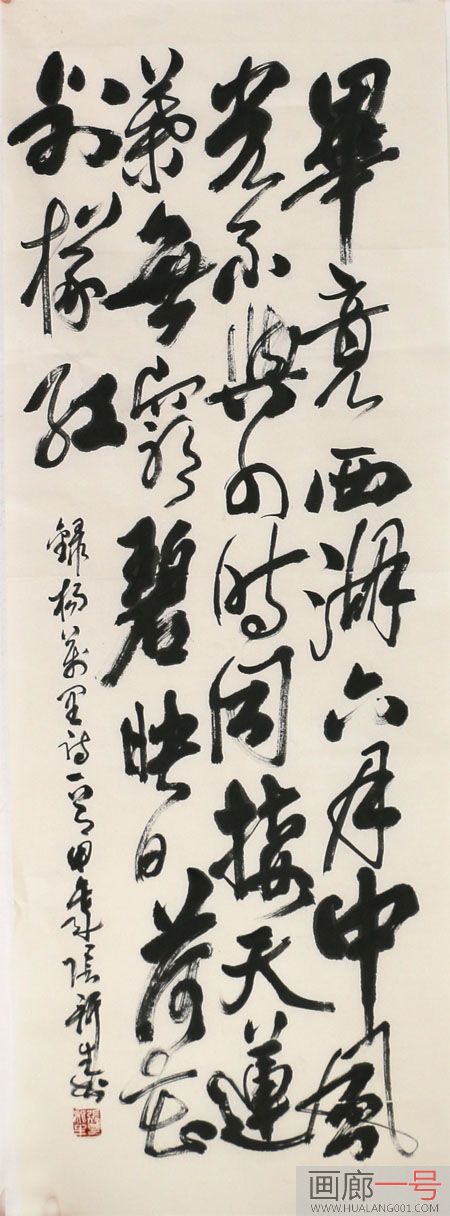 畢竟西湖六月中風
光不與四時同接天蓮
葉無窮碧映日荷花
別樣紅
錄楊萬里詩一首
画廊一号
WWW.HUALANG001.COM